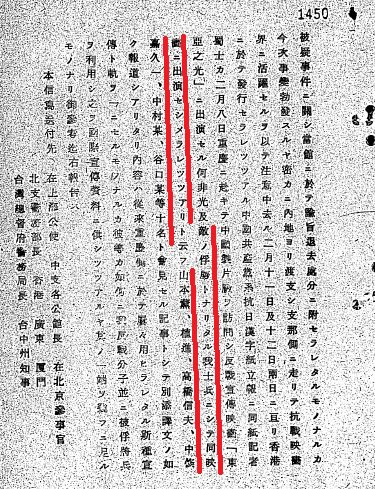 1450
事件ニ關シ當館ニ於テ諭旨退去處分ニ附セラレタルモノナルカ
今次事變勃發スルヤ密カニ內地ヨリ渡支シ支那側ニ走リテ抗戰映畫
界ニ活躍セルヲ以テ注意中去ル二月十一日及十二日兩日ニ亘リ香港
ニ於テ發行セラレツツアル中國共產黨系抗日漢字紙立報ニ同紙記者
蜀士カ二月八日重慶ニ赴キテ中國製片廠ヲ訪問シ反戰宣傳映畫「東
亞之光」ニ出演セル何非光及敵ノ俘虜トナリタル我士兵ニシテ同映
畫ニ出演セシメラレツツアリト云フ山本薰、植進、高橋信夫、中
嘉久一、中村某、谷口某等十名ト會見セル記事トシテ別添譯文ノ如
ク報道シアリタリ內容ハ從來重慶側ニ於テ屢々用ヒラレタル斯種宣
傳ト軌ヲ一ニセルモノナルカ彼等カ如何ニ反戰分子並ニ被俘將兵
ヲ利用シ之ヲ宣傳資料ニ供シツツアルヤ其ノ一端ヲ窺フニ足ル
モノナリ御參考迄右報告ス
本信寫送付先 在上海公使 中支各公館長 在北京參事官
北支警務部長 香港 廣東 厦門
台灣總督府警務局長 台中州知事